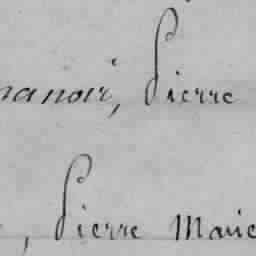 manoir, Pierre
, Pierre Marie